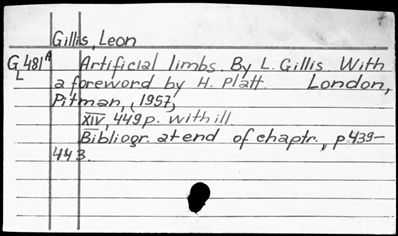 Gillis, Leon
G 481 A
L
Artificial limbs. By L. Gillis. With
a foreword by H. Platt. London,
Pitman, (1957)
XIV, 449 p. with ill.
Bibliogr. at end of chaptr., p 439-
443.